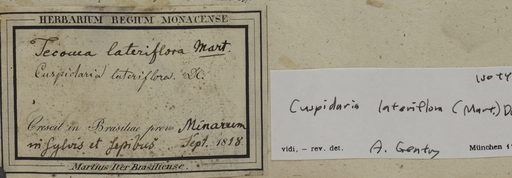 HERBARIUM REGIUM MONACENSE
Tecoma lateriflora Mart.
Cuspidaria lateriflora DC.
Crescit in Brasiliae prov. Minarum
in sylvis et sepibus Sept. 1818.
Martius Iter Brasiliense.
Cuspidaria lateriflora (Mart.) D
vidi, – rev. det. A. Gentry München